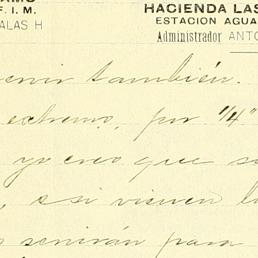 HACIENDA LAS
F. I. M.
ESTACION AGUA
ALAS H
Administrador ANTO
enir también.
extremo, por 1/4"
yo creo que se
, si vienen l
servirán para